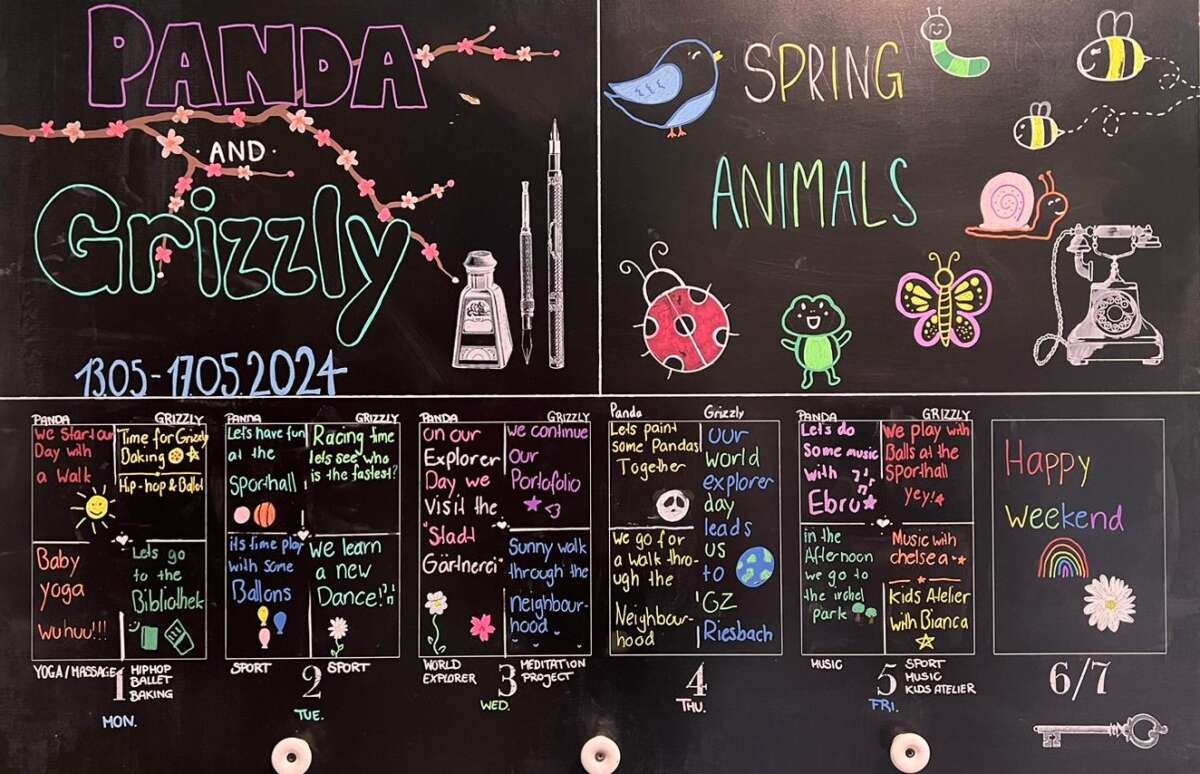 PANDA
AND
Grizzly
13.05 - 17.05.2024
SPRING
ANIMALS
PANDA
GRIZZLY
We start our
Day with
a walk
Time for Grizzly
Baking
Hip-hop & Ballet
Baby
yoga
wuhuu!!!
Lets go
to the
Bibliothek
YOGA / MASSAGE
1
HIPHOP
BALLET
BAKING
MON.
PANDA
GRIZZLY
Lets have fun
at the
Sporthall
Racing time
lets see who
is the fastest?
its time play
with some
Ballons
we learn
a new
Dance!
SPORT
2
SPORT
TUE.
PANDA
GRIZZLY
on our
Explorer
Day we
visit the
"Stadt
Gärtnerei"
we continue
our
Portofolio
Sunny walk
through the
neighbour-
hood
WORLD
EXPLORER
3
MEDITATION
PROJECT
WED.
Panda
Grizzly
Lets paint
some Pandas
Together
our
world
explorer
day
leads
us
to
"GZ
Riesbach
We go for
a walk thro-
ugh the
Neighbour-
hood
4
THU.
PANDA
GRIZZLY
Lets do
some music
with
Ebru
We play with
Balls at the
Sporthall
yey!
in the
Afternoon
we go to
the irchel
park
Music with
chelsea
Kids Atelier
with Bianca
MUSIC
5
SPORT
MUSIC
KIDS ATELIER
FRI.
Happy
weekend
6/7